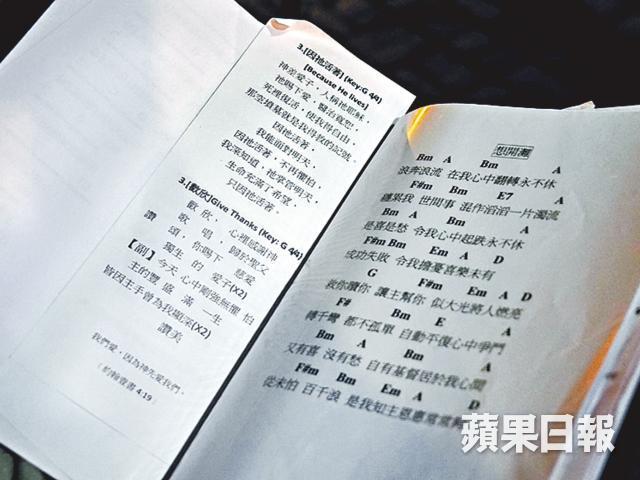 3.[因祂活著] (Key:G 4/4)
[Because He lives]
神差愛子，人稱祂耶穌，
祂賜下愛，醫治寬恕，
死裡復活，使我得自由，
那空墳墓就是我得救的記號。
因祂活著，
我能面對明天，
因祂活著，不再懼怕，
我深知道，祂掌管明天，
生命充滿了希望，
只因祂活著。
3.1[歡欣]Give Thanks (Key: G 4/4)
歡欣，心裡感謝神
歌唱，歸於聖父
讚頌，你賜下 慈愛
獨生 的 愛子(X2)
【副】今天 心中剛強無懼怕
主的豐 盛 滿 一生
皆因主手曾為我顯深(X2)
讚美
我們愛，因為神先愛我們。
(約翰壹書 4:19)
想開灑
Bm A Bm A
浪奔浪流 在我心中翻轉永不休
F#m Bm E7 A
世間事 混作滔滔一片濁流
Bm A Bm A
是喜是愁 令我心中起跌永不休
F#m Bm Em A D
成功失敗 令我擔憂喜樂未有
G F#m Em A D
救你贖你 讓主幫你 似大光將人燃亮
F# Bm E A
轉千彎 都不孤單 自動平復心中爭鬥
Bm A Bm A
又有喜 沒有愁 自有基督居於我心間
F#m Bm Em A D
從未怕 百千浪 是我知主恩應常當夠
蘋果日報